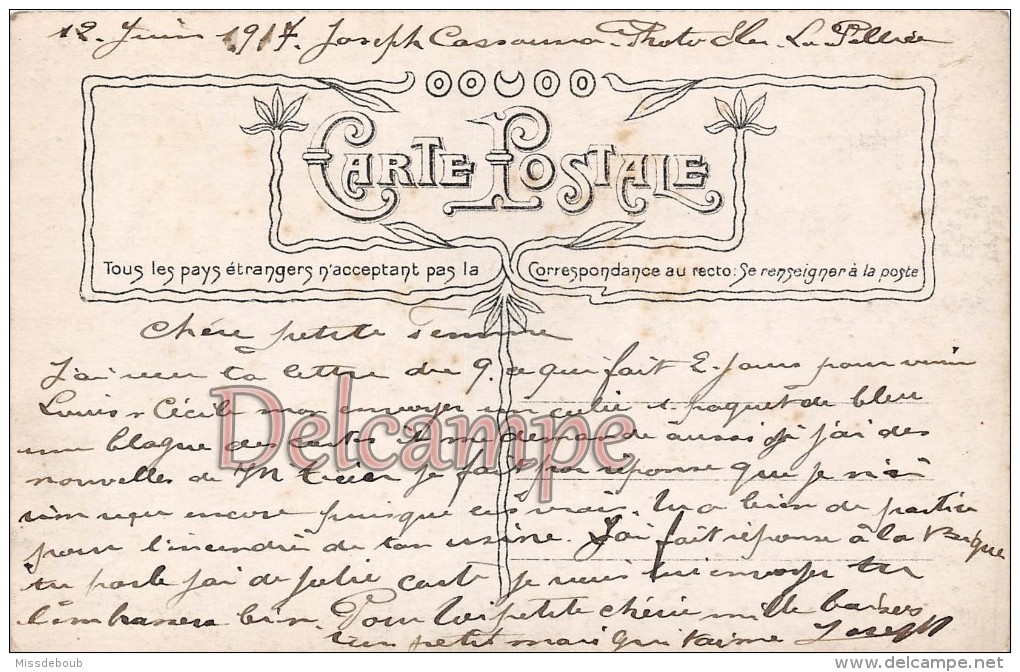 12. Juin 1917. Joseph Photo
CARTE POSTALE
Tous les pays étrangers n'acceptant pas la Correspondance au recto: Se renseigner à la poste
Chére petite femme
J'ai reçu ta lettre du 9. ce qui fait 2. Jours pour venir
Louis & Cécile mon envoyer un colie paquet de bleu
une blague des cartes me demande aussi si j'ai des
nouvelles de M je fais pour réponse que je n'ai
rien reçu encore puisque c'est vrai. bien de
pour l'incendie de ton usine. J'ai fait réponse à la
tu parle j'ai de jolie carte je vais lui envoyer tu
l'embrassera bien. Pour toi petite chérie mille baisers
un petit mari qui t'aime Joseph
Delcampe
Missdeboub
delcampe.net